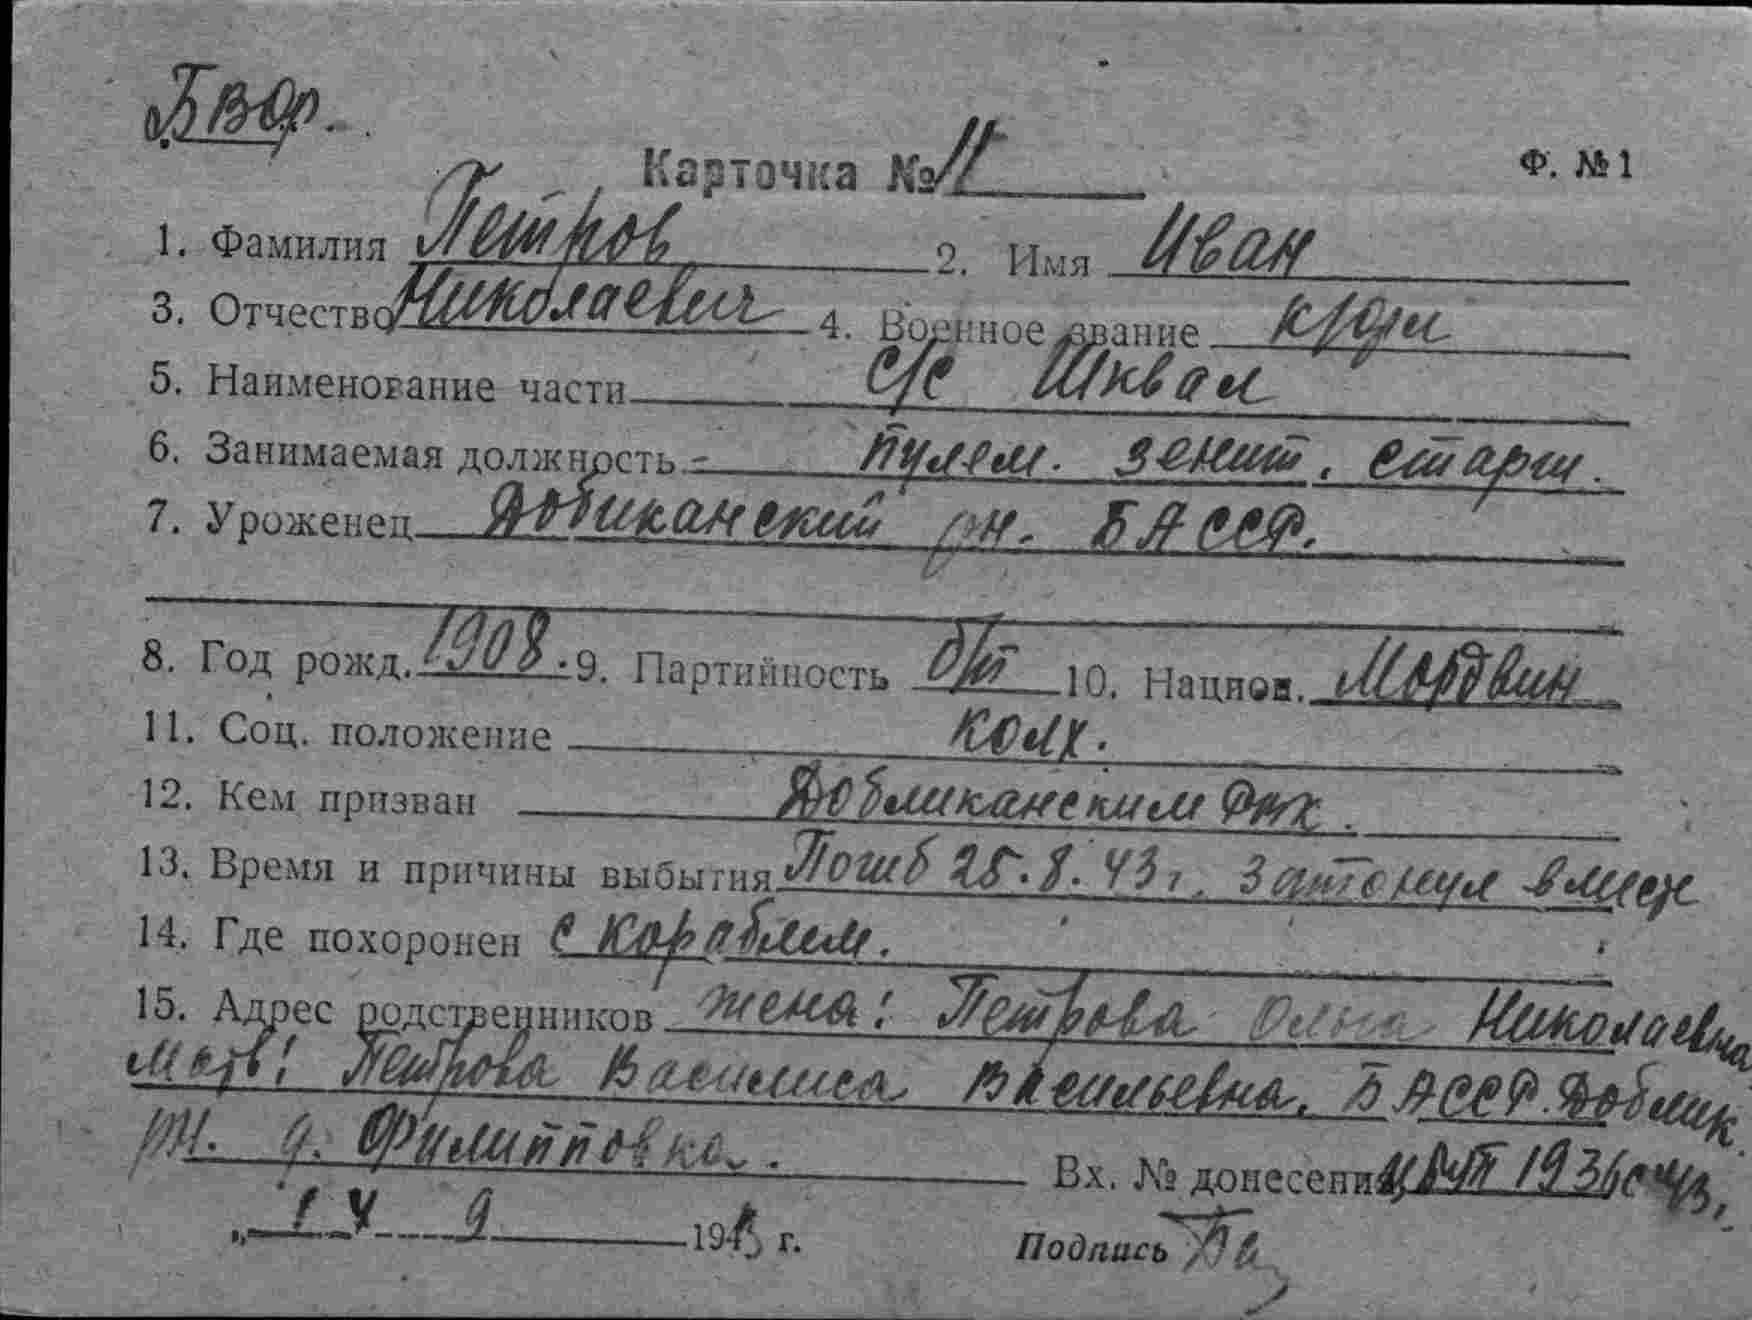 Карточка № 11
Ф. №1
1. Фамилия Петров 2. Имя Иван
3. Отчество Николаевич 4. Военное звание к/фл
5. Наименование части с/с Шквал
6. Занимаемая должность пулем. зенит. старш.
7. Уроженец Добликанский рн. БАССР.
8. Год рожд. 1908. 9. Партийность б/п 10. Национ. Мордвин
11. Соц. положение колх.
12. Кем призван Добликанским РВК.
13. Время и причины выбытия Погиб 25.8.43 г. Затонул вместе
14. Где похоронен с кораблем.
15. Адрес родственников жена: Петрова Ольга Николаевна
мать: Петрова Василиса Васильевна. БАССР. Доблик
рн. д. Филипповка.
Вх. № донесения 1936
„14 9 1943 г.
Подпись